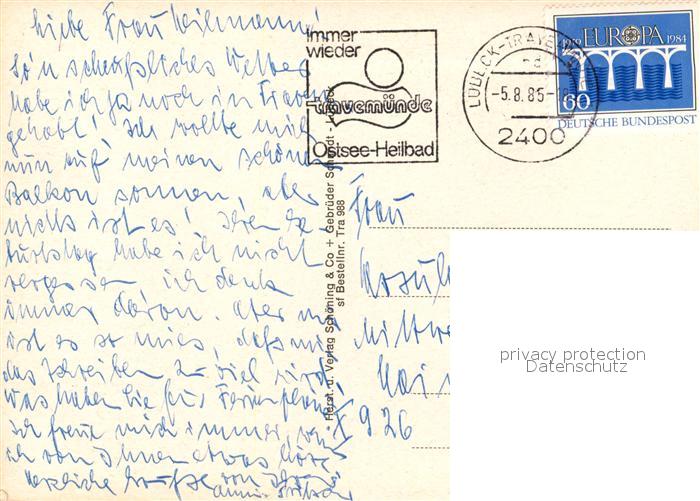 liebe Frau Weihmann!
So'n scheußliches Wetter
habe ich ja noch in Travem
gehabt! Ich wollte mich
nun auf meinen schönen
Balkon sonnen, aber
nichts ist es! Ihren Ge-
burtstag habe ich nicht
vergessen ich denk
immer daran. Aber mir
ist es so mies, dass mir
das Schreiben zu viel wird.
Was haben Sie für Ferienpläne
ich freue mich immer, wenn
ich von Ihnen etwas höre
Herzliche Grüße von Ihrer
Immer
wieder
travemünde
Lübeck
Ostsee-Heilbad
LÜBECK-TRAVEMÜNDE
-5.8.85-18
2400
1959 EUROPA 1984
60
DEUTSCHE BUNDESPOST
Herst. u. Verlag Schöning & Co + Gebrüder Schmidt - Lübeck
sf Bestellnr. Tra 988
Frau
Ursula
Mittwe
X 926
privacy protection
Datenschutz